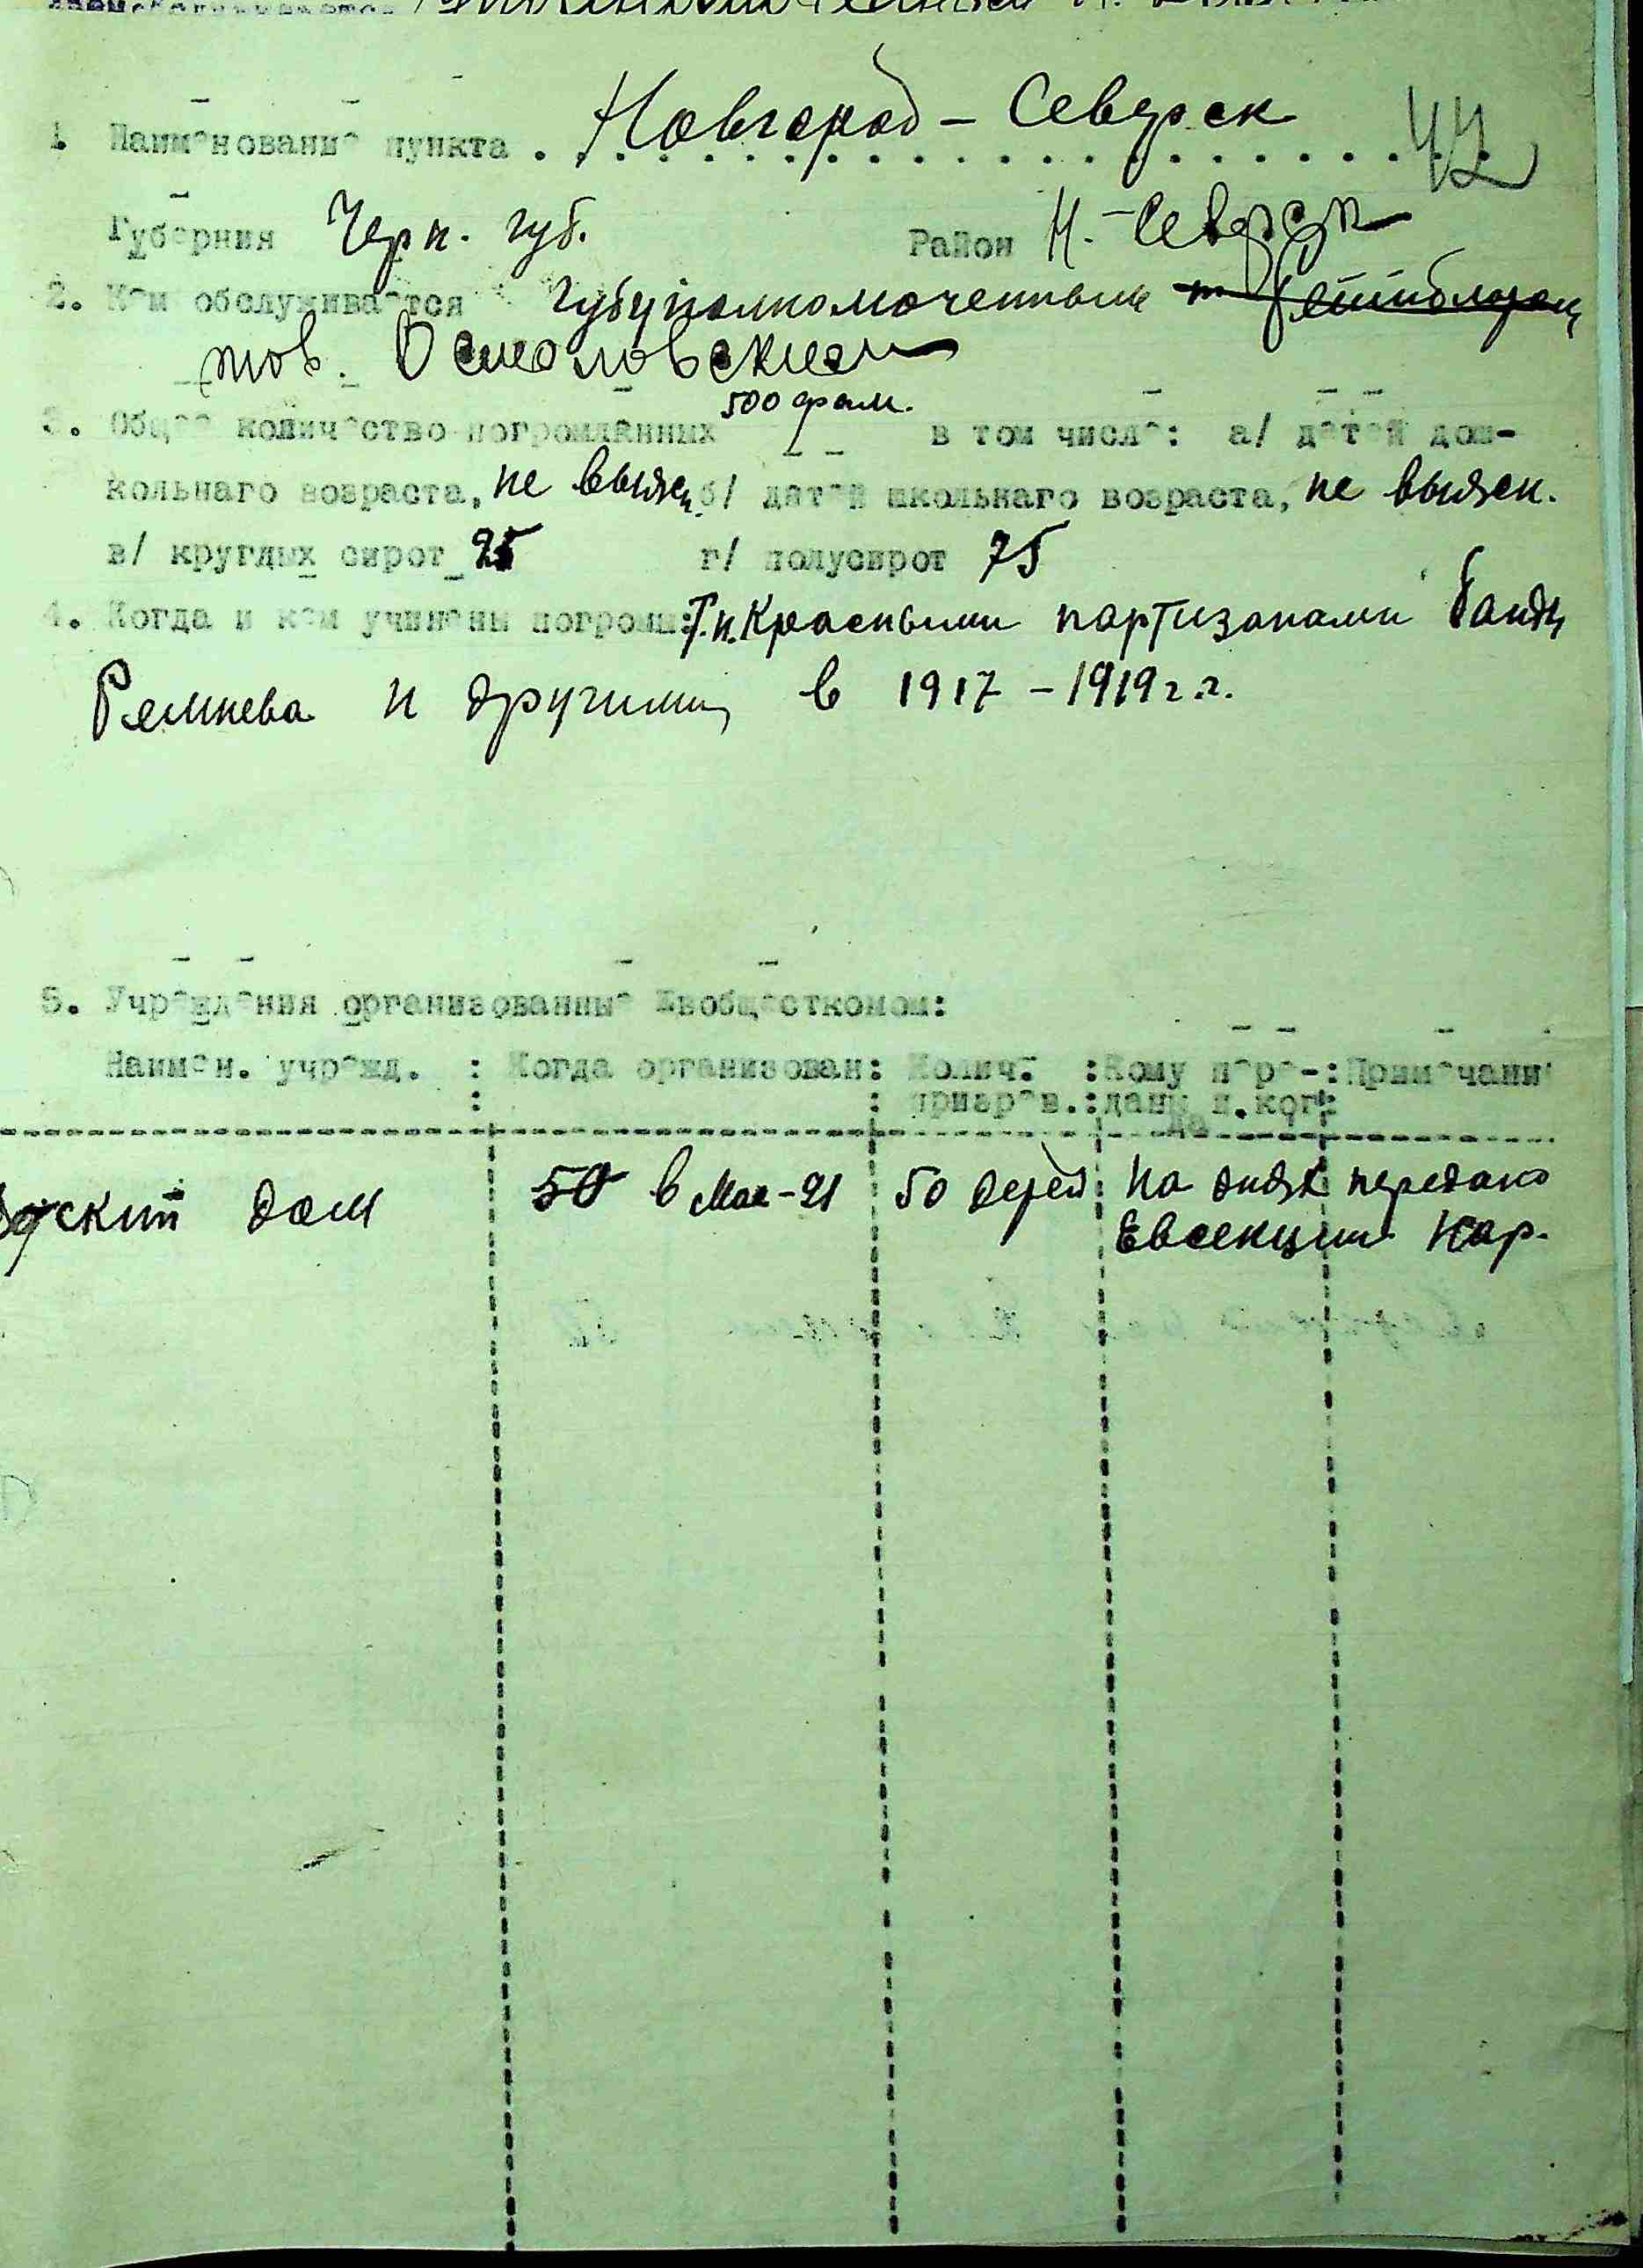 1. Наименование пункта . Новгород – Северск
42
Губерния Черн. губ. Район Н.-Северск
2. Кем обслуживается Губуполномоченным
тов. Осмоловским
500 фам.
3. Общее количество погромланных в том числе: а/ детей дош-
кольнаго возраста, не выясн. б/ детей школьнаго возраста, не выясн.
в/ круглых сирот 25 г/ полусирот 75
4. Когда и кем учинены погромы: Т.н. Красными партизанами банды
Ремнева и другими, в 1917 – 1919 г.г.
5. Учреждения организованные Евобщесткомом:
Наимен. учрежд. : Когда организован: Колич. :Кому пере-:Примечани
: : призрев.:даны и.ког:
да
ский дом 50 в Мае – 21 50 детей На днях передано
Евсекции Нар.